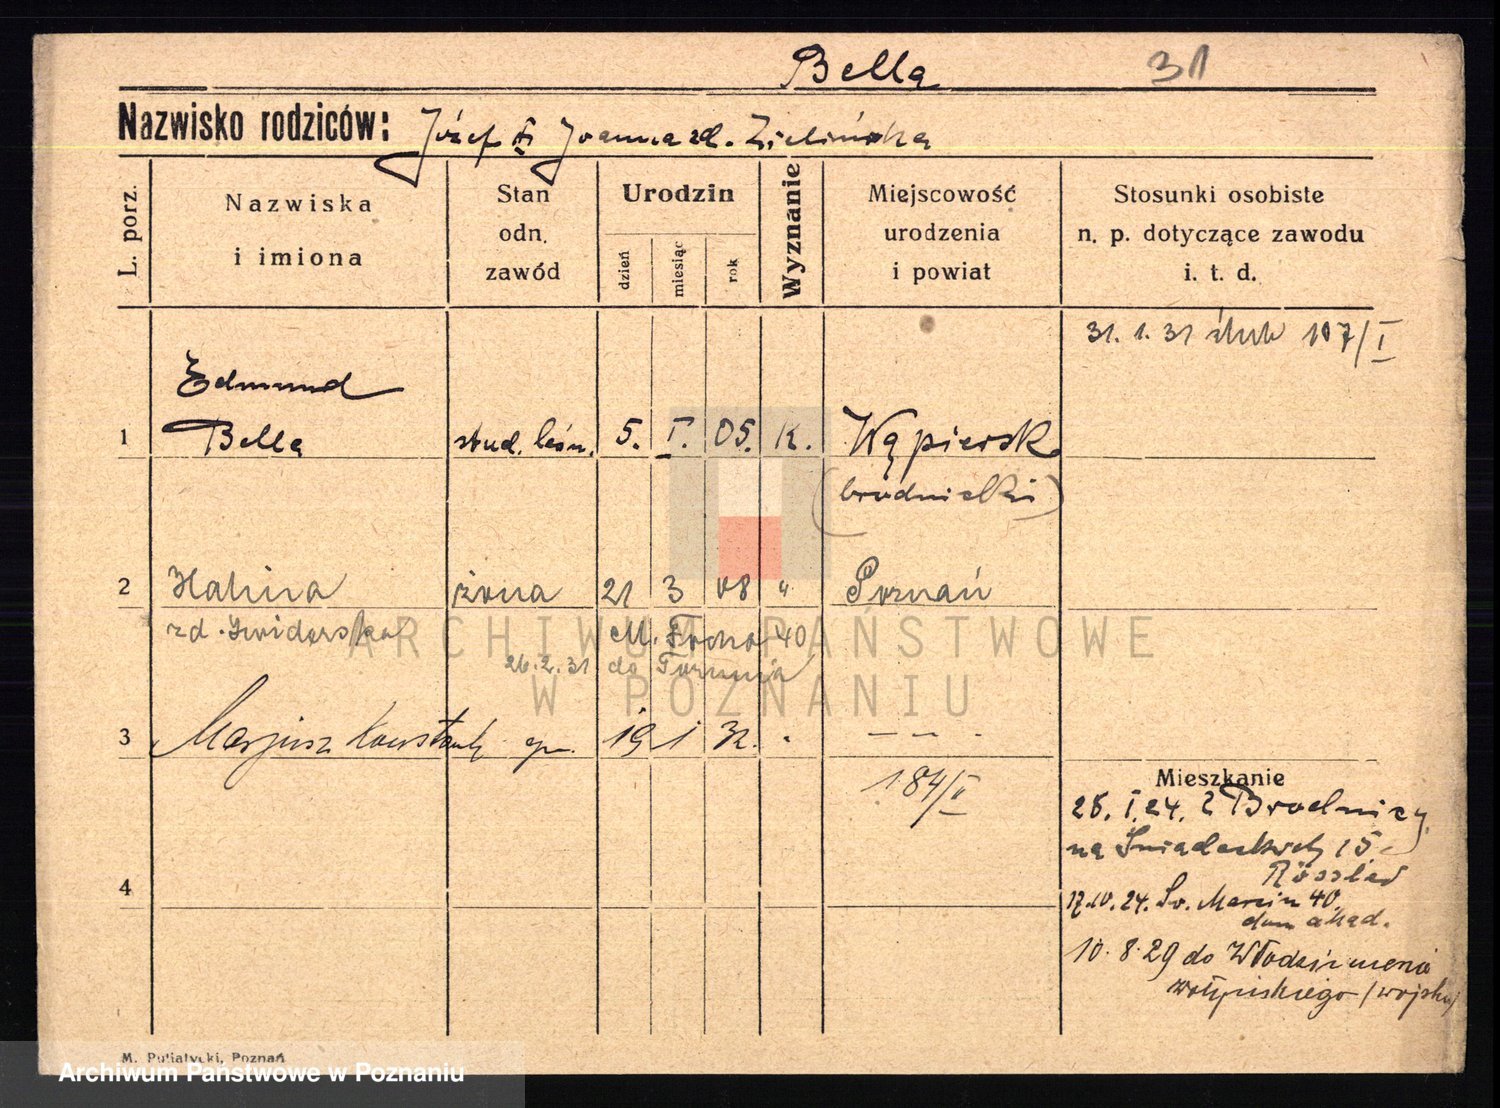 Bella 31
Nazwisko rodziców: Józef i Joanna zd. Zielińska
L. porz.
Nazwiska
i imiona
Stan
odn.
zawód
Urodzin
dzień
miesiąc
rok
Wyznanie
Miejscowość
urodzenia
i powiat
Stosunki osobiste
n. p. dotyczące zawodu
i. t. d.
31. 1. 31 ślub 107/I
Edmund
1 Bella stud. leśn. 5. I. 05. K. Wąpiersk
(brodnicki)
2 Halina żona 21 3 08 " Poznań
zd. Świderska M. Focha 40
26.2.31 do Torunia
3 Marjusz Konstanty 19 1 32. " — — -
184/II
Mieszkanie
25. I. 24. z Brodnicy
na Śniadeckich 15
4
17.10.24. Św. Marcin 40
dom akad.
10. 8. 29 do Włodzimierza
wołyńskiego (wojsko)
M. Putiatycki, Poznań
ARCHIWUM PAŃSTWOWE
W POZNANIU
Archiwum Państwowe w Poznaniu